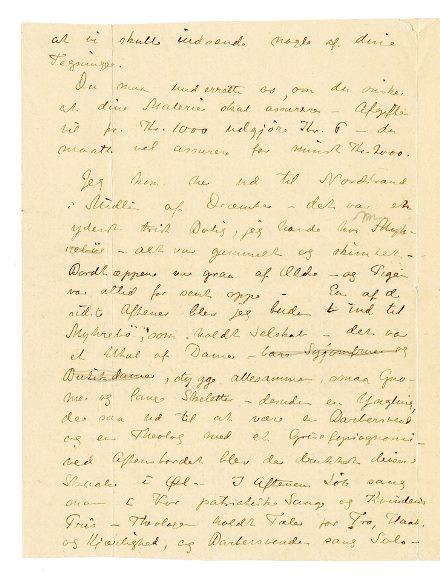 at vi skulle indsende nogle af dine
Tegninger.
Du maa underrette os, om du ønsker
at dine Malerier skal assureres – Afgiften
vil pr. Kr. 1000 udgjöre Kr. 6 – du
maatte vel assurere for mindst Kr. 2000.
Jeg kom her ud til Nordstrand
i Midten af December – det var et
yderst trist Bolig, jeg havde hos
– alt var gammelt og skimlet –
Bordtæppene var graa af Ælde – og Pigen
var altid for sent oppe – En af de
sidste Aftener blev jeg buden ind til
Myhrebö, som holdt Selskab – det var
et Utal af Damer – og
, stygge allesammen, smaa Gno-
mer og lange Skeletter – desuden en Yngling,
der saa ud til at være en Barbersvend
og en Theolog med et
ved Aftenbordet blev der drukket disses
Skaaler i Öl – I Aftenens Löb sang
man i Kor patriotiske Sange og Kvindens
Pris – Theologen holdt Tale for Tro, Haab
og Kjærlighed, og Barbersvenden sang Solo –